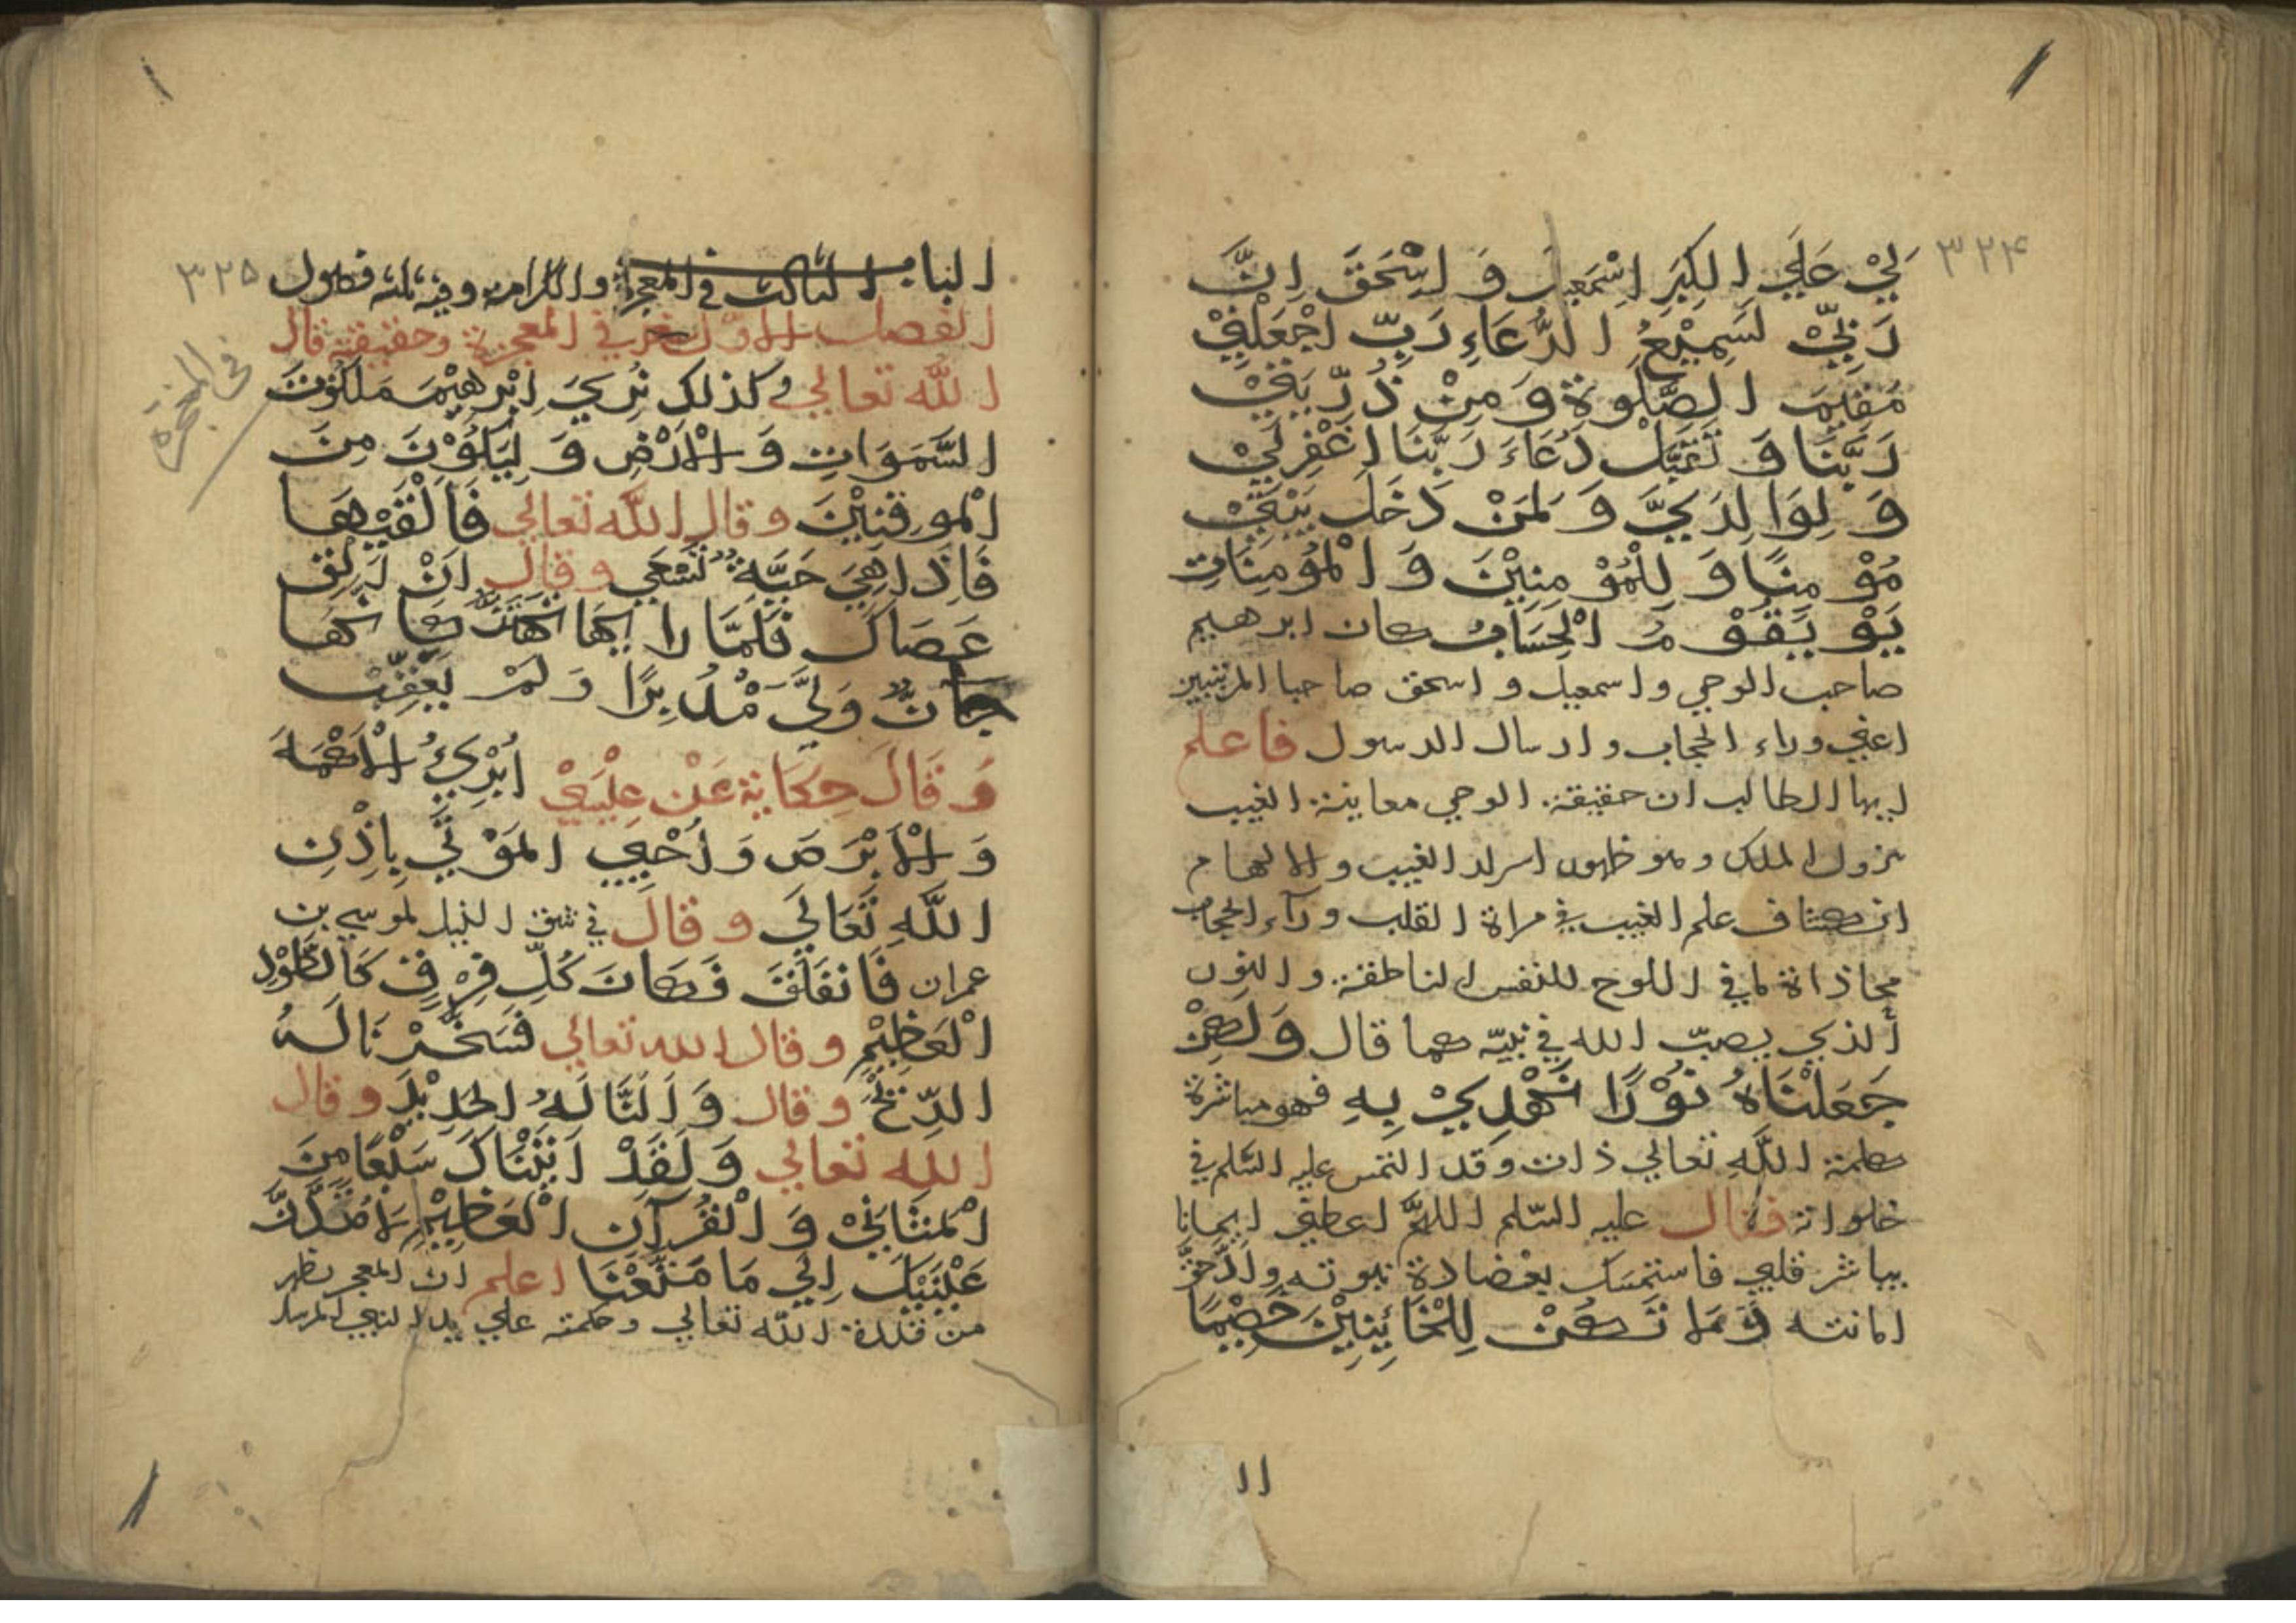 ٣٢۴
لِيْ عَلَي الْكِبَرِ اِسْمَعِيلَ وَ اِسْحَقَ اِنَّ
رَبِّيْ لَسَمِيْعُ الدُّعَاءِ رَبِّ اجْعَلْنِيْ
مُقِيمَ الصَّلوةِ وَ مِنْ ذُرِّيَتِيْ
رَبَّنَا وَ تَقَبَّلْ دُعَاءَ رَبَّنَا اغْفِرْلِيْ
وَ لِوَالِدَيَّ وَ لِمَنْ دَخَلَ بَيْتِيْ
مُؤْمِنًا وَ لِلْمُؤْمِنِيْنَ وَ الْمُؤمِنَاتِ
يَوْ يَقُوْمُ الْحِسَابُ كان ابرهيم
صاحب الوحي و اسمعيل و اسحق صاحبا المرتبتين
اعني وراء الحجاب و ارسال الرسول فاعلم
ايها الطالب ان حقيقة الوحي معاينة الغيب
نزول الملك و هو ظهور اسرار الغيب و الالهام
انكشاف علم الغيب في مراة القلب ورآء الحجاب
محاذاة لما في اللوح للنفس الناطقة و النور
الذي يصبّ الله في نبيّه كما قال وَلكِنْ
جَعَلْنَاهُ نُوْرًا نَهْدِيْ بِهِ فهو مباشرة
كلمة اللّه تعالي ذات وقد التمس عليه السّلم في
خلواته فقال عليه السّلم اللهمّ اعطني ايمانا
يباشر قلبي فاستمسك بعضادة نبوته و
امانته وَمَا تَكُنْ لِلْخَائِنِيْنَ خَصِيْمًا
اا
٣٢۵
الباب الثالث في المعجزة و الكرامة و فيه ثلثه فصول
الفصل الاوّل في المعجزة و حقيقته قال
اللّه تعالي و كذلك نُرِيَ اِبْرهِيْمَ مَلَكُوْتَ
السَّمَوَاتِ وَ الْاَرْضِ وَ لِيَكُوْنَ مِنَ
الْموقِنِيْنَ و قال اللّه تعالي فَاَلْقَيهَا
فَاِذَا هِيَ حَيَّةٌ تَسْعَي و قال اَنْ اَلْقِ
عَصَاكَ فَلَمَّا رَاهَا تَهْتَزُّ كَاَنَّهَا
جَانٌّ وَلَّيَ مُدْبِرًا وَ لَمْ يُعَقِّبْ
وَ قَالَ حِكَايَة عَنْ عِيْسَيْ اُبْرِيُ الْاَكْمَهَ
وَ الْاَبْرَصَ وَ اُحْيِي الْمَوْتَي بِاِذْنِ
اللَّهِ تَعَالَي و قال في شق النيل لموسي بن
عمران فَانْفَلَقَ فَكَانَ كُلُّ فِرْقٍ كَالطَّوْدِ
الْعَظِيْمِ و قال الله تعالي فَسَخَّرْنَا لَهُ
الرِّيْحَ و قال وَ اَلَنَّا لَهُ الْحَدِيْدَ و قال
الله تعالي وَ لَقَدْ اَتَيْنَاكَ سَبْعًا مِنَ
الْمَثَانِيْ وَ الْقُرآنَ الْعَظِيْمَ لَا تَمُدَّنَّ
عَيْنَيْكَ اِلَي مَا مَتَّعْنَا اعلم ان المعجز يظهر
من قدرة اللّه تعالي و حكمته علي يد النبي المرسل